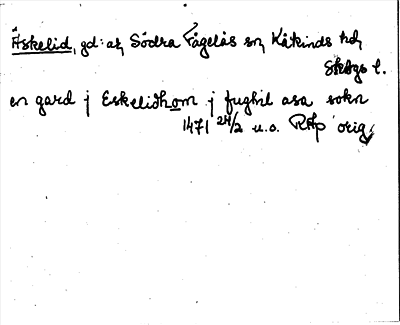 Äskelid, gd: at Södra Fågelås sn, Kåkinds hd,
Skbgs l.
en gard j Eskelidhom j fughil asa sokn
1471 24/2 u.o. RAp orig.